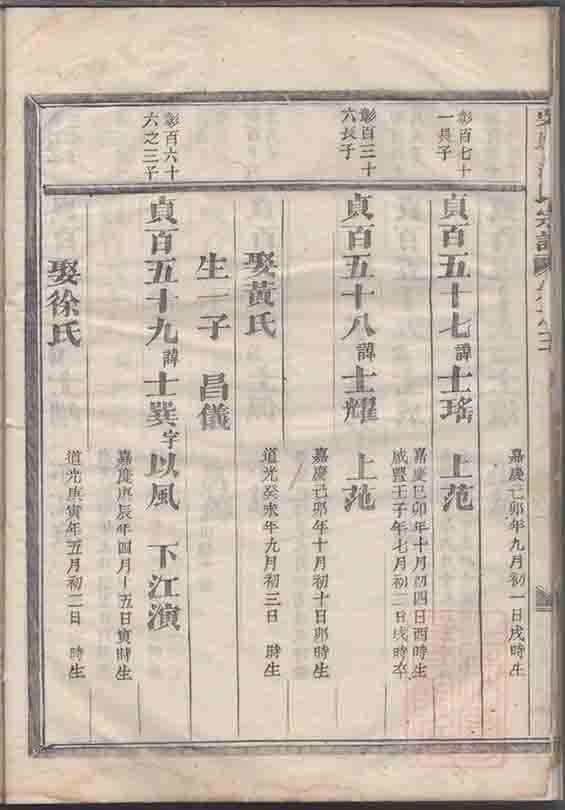 宗譜
嘉慶己卯年九月初一日戌時生
彰百七十
一長子
貞百五十七諱士瑤 上范
嘉慶己卯年十月初四日酉時生
咸豐壬子年七月初二日戌時卒
彰百三十
六長子
貞百五十八諱士耀 上范
嘉慶己卯年十月初十日卯時生
娶黃氏
道光癸未年九月初三日 時生
生一子 昌儀
彰百六十
六之三子
貞百五十九諱士巽字以風 下江演
嘉慶庚辰年四月十五日寅時生
娶徐氏
道光庚寅年五月初二日 時生